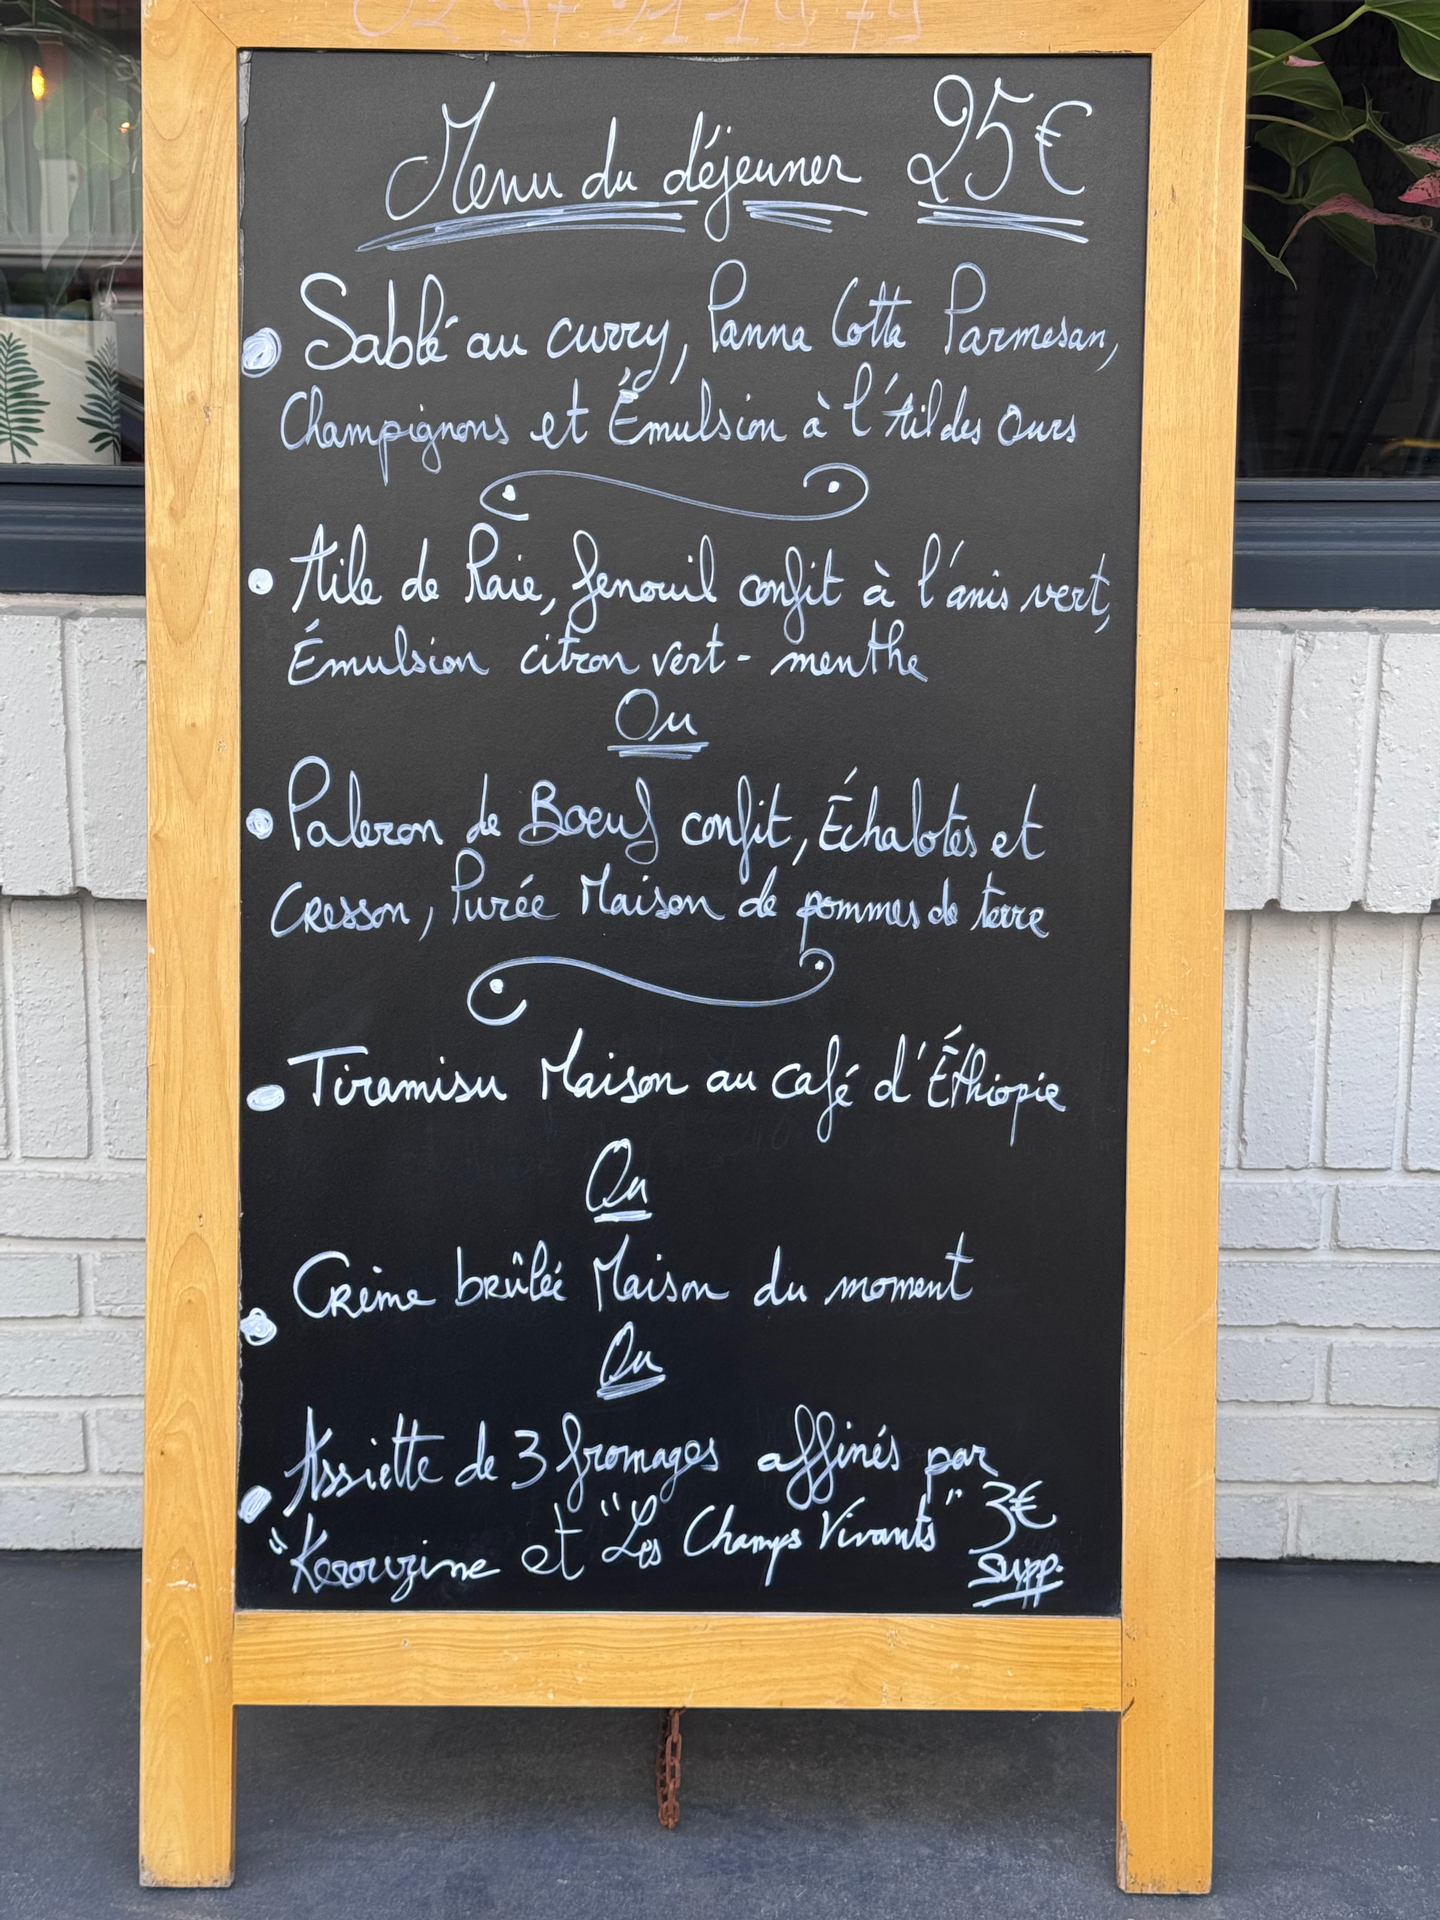 02 97 21 19 79
Menu du déjeuner 25€
Sablé au curry, Panna Cotta Parmesan,
Champignons et Émulsion à l'Ail des Ours
Aile de Raie, fenouil confit à l'anis vert,
Émulsion citron vert - menthe
Ou
Paleron de Boeuf confit, Échalotes et
Cresson, Purée Maison de pommes de terre
Tiramisu Maison au café d'Éthiopie
Ou
Crème brûlée Maison du moment
Ou
Assiette de 3 fromages affinés par
"Kerouzine et "Les Champs Vivants" 3€
supp.